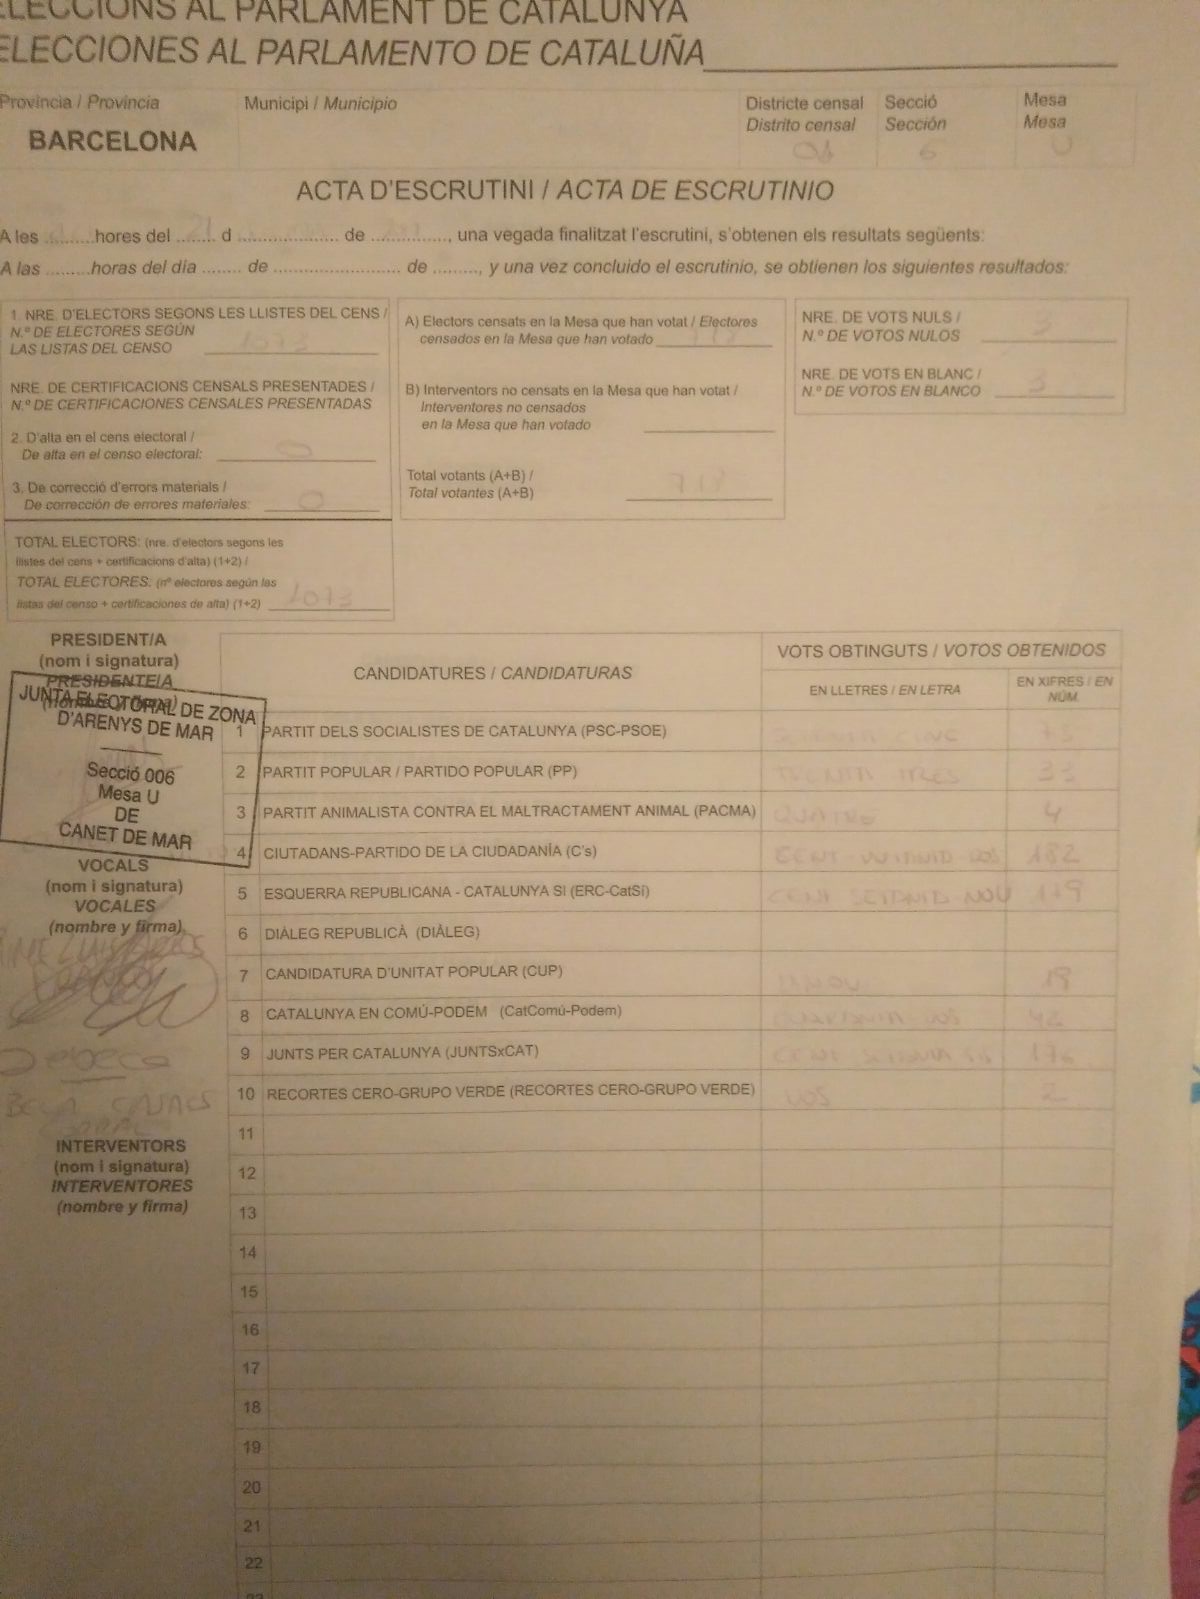 ELECCIONS AL PARLAMENT DE CATALUNYA
ELECCIONES AL PARLAMENTO DE CATALUÑA
Província / Provincia
BARCELONA
Municipi / Municipio
Districte censal
Distrito censal
01
Secció
Sección
6
Mesa
Mesa
U
ACTA D'ESCRUTINI / ACTA DE ESCRUTINIO
A les .......... hores del ........ d .................... de ..............., una vegada finalitzat l'escrutini, s'obtenen els resultats següents:
A las ......... horas del día ........ de .......................... de ........., y una vez concluido el escrutinio, se obtienen los siguientes resultados:
1. NRE. D'ELECTORS SEGONS LES LLISTES DEL CENS /
N.º DE ELECTORES SEGÚN
LAS LISTAS DEL CENSO 1073
NRE. DE CERTIFICACIONS CENSALS PRESENTADES /
N.º DE CERTIFICACIONES CENSALES PRESENTADAS
2. D'alta en el cens electoral /
De alta en el censo electoral: 0
3. De correcció d'errors materials /
De corrección de errores materiales: 0
TOTAL ELECTORS: (nre. d'electors segons les
llistes del cens + certificacions d'alta) (1+2) /
TOTAL ELECTORES: (nº electores según las
listas del censo + certificaciones de alta) (1+2) 1073
A) Electors censats en la Mesa que han votat / Electores
censados en la Mesa que han votado 718
B) Interventors no censats en la Mesa que han votat /
Interventores no censados
en la Mesa que han votado
Total votants (A+B) /
Total votantes (A+B) 718
NRE. DE VOTS NULS /
N.º DE VOTOS NULOS 3
NRE. DE VOTS EN BLANC /
N.º DE VOTOS EN BLANCO 3
PRESIDENT/A
(nom i signatura)
PRESIDENTE/A
JUNTA ELECTORAL DE ZONA
D'ARENYS DE MAR
Secció 006
Mesa U
DE
CANET DE MAR
VOCALS
(nom i signatura)
VOCALES
(nombre y firma)
INTERVENTORS
(nom i signatura)
INTERVENTORES
(nombre y firma)
CANDIDATURES / CANDIDATURAS
VOTS OBTINGUTS / VOTOS OBTENIDOS
EN LLETRES / EN LETRA
EN XIFRES / EN
NÚM.
1 PARTIT DELS SOCIALISTES DE CATALUNYA (PSC-PSOE) SETANTA CINC 75
2 PARTIT POPULAR / PARTIDO POPULAR (PP) TRENTA TRES 33
3 PARTIT ANIMALISTA CONTRA EL MALTRACTAMENT ANIMAL (PACMA) QUATRE 4
4 CIUTADANS-PARTIDO DE LA CIUDADANÍA (C's) CENT VUITANTA-DOS 182
5 ESQUERRA REPUBLICANA - CATALUNYA SÍ (ERC-CatSí) CENT SETANTA-NOU 179
6 DIÀLEG REPUBLICÀ (DIÀLEG)
7 CANDIDATURA D'UNITAT POPULAR (CUP) 19
8 CATALUNYA EN COMÚ-PODEM (CatComú-Podem) QUARANTA-DOS 42
9 JUNTS PER CATALUNYA (JUNTSxCAT) CENT SETANTA SIS 176
10 RECORTES CERO-GRUPO VERDE (RECORTES CERO-GRUPO VERDE) DOS 2
11
12
13
14
15
16
17
18
19
20
21
22